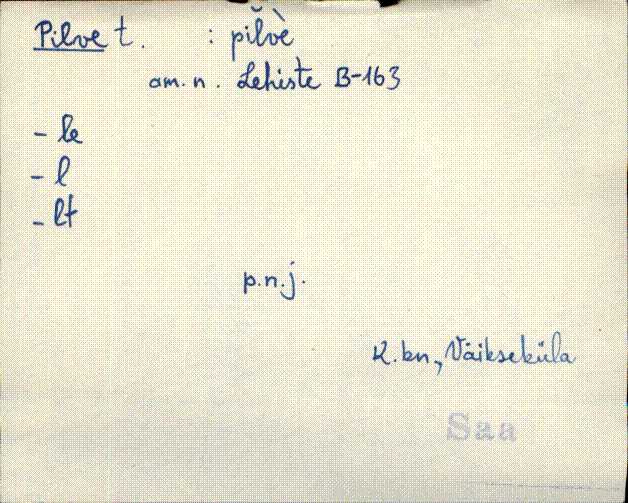 Pilve t. : pil̆vè
am. n. Lehiste B-163
- le
- l
- lt
p.n.j.
K. kn, Väikseküla
Saa